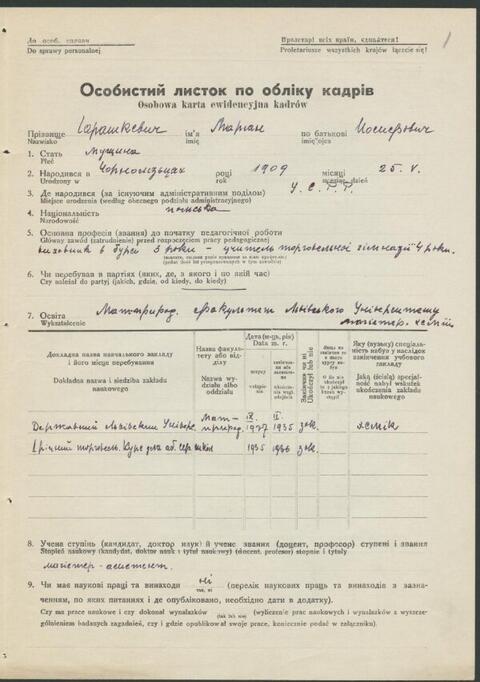 До особ. справи
Do sprawy personalnej
Пролетарі всіх країн, єднайтеся!
Proletariusze wszystkich krajów łączcie się!
1
Особистий листок по обліку кадрів
Osobowa karta ewidencyjna kadrów
Прізвище Царашкевич ім'я Мар'ян по батькові Йосифович
Nazwisko imię imię ojca
1. Стать Мущина
Płeć
2. Народився в Чорнолізцах році 1909 місяці 25. V.
Urodzony w rok
3. Де народився (за існуючим адміністративним поділом) У. С. Р. Р.
Miejsce urodzenia (według obecnego podziału administracyjnego)
4. Національність польська
Narodowość
5. Основна професія (звання) до початку педагогічної роботи
Główny zawód (zatrudnienie) przed rozpoczęciem pracy pedagogicznej
виховник в бурсі 3 роки - учитель торговельної гімназії 4 роки.
6. Чи перебував в партіях (яких, де, з якого і по який час)
Czy należał do partyj (jakich, gdzie, od kiedy, do kiedy)
7. Освіта Мат. природ. факультет Львівського Університету
Wykształcenie магістер хемії
Докладна назва навчального закладу і його місце перебування
Dokładna nazwa i siedziba zakładu naukowego
Назва факультету або відділу
Nazwa wydziału albo oddziału
Дата (м-ць, рік)
Data m. r.
вступлення
Закінчив чи ні
Ukończył lub nie
Яку (вузьку) спеціальність набув у наслідок закінчення учбового закладу
Jaką (ścisłą) specjalność nabył wskutek ukończenia zakładu naukowego
Державний Львівський Універс. Мат- природ. IX. 1927 II. 1935 зак. хемік
1 річний торговель. Курс для аб. сер. школ 1935 1936 зак.
8. Учена ступінь (кандидат, доктор наук) й учене звання (доцент, професор) ступені і звання
Stopień naukowy (kandydat, doktor nauk) i tytuł naukowy (docent, profesor) stopnie i tytuły
магістер - асистент.
9. Чи має наукові праці та винаходи ні (перелік наукових праць та винаходів з зазначенням, по яких питаннях і де опубліковано, необхідно дати в додатку).
Czy ma prace naukowe i czy dokonał wynalazków (tak lub nie) (wyliczenie prac naukowych i wynalazków z wyszczególnieniem badanych zagadnień, czy i gdzie opublikował swoje prace, konieczne podać w załączniku).